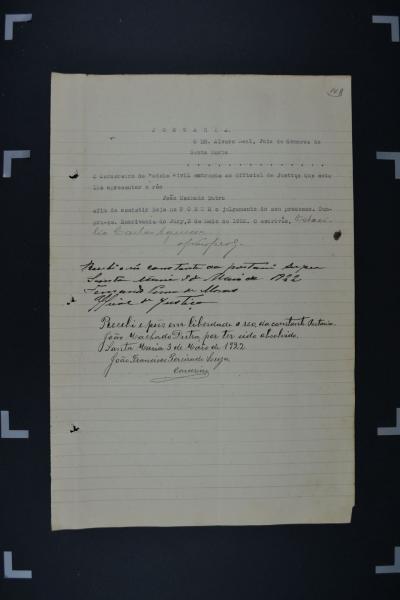 148
PORTARIA.
O DR. Alvaro Leal, Juiz de Comarca de
Santa Maria
O Carcereiro da Cadeia Civil entregue ao Official de Justiça que este
lhe apresentar o réo
João Machado Dutra
afim de assistir hoje no FORUM o julgamento do seu processo. Cum-
pra-se. Escrivania do Jury, 3 de Maio de 1922. O escrivão,
Recebi o réo constante da portaria supra
Santa Maria 3 de Maio de 1922
Official de Justiça
Recebi e puis em liberdade o reo, da constante Portaria.
João Machado Dutra, por ter sido absolvido.
Santa Maria 3 de Maio de 1922
João Francisco Pereira de Souza
Carcereiro